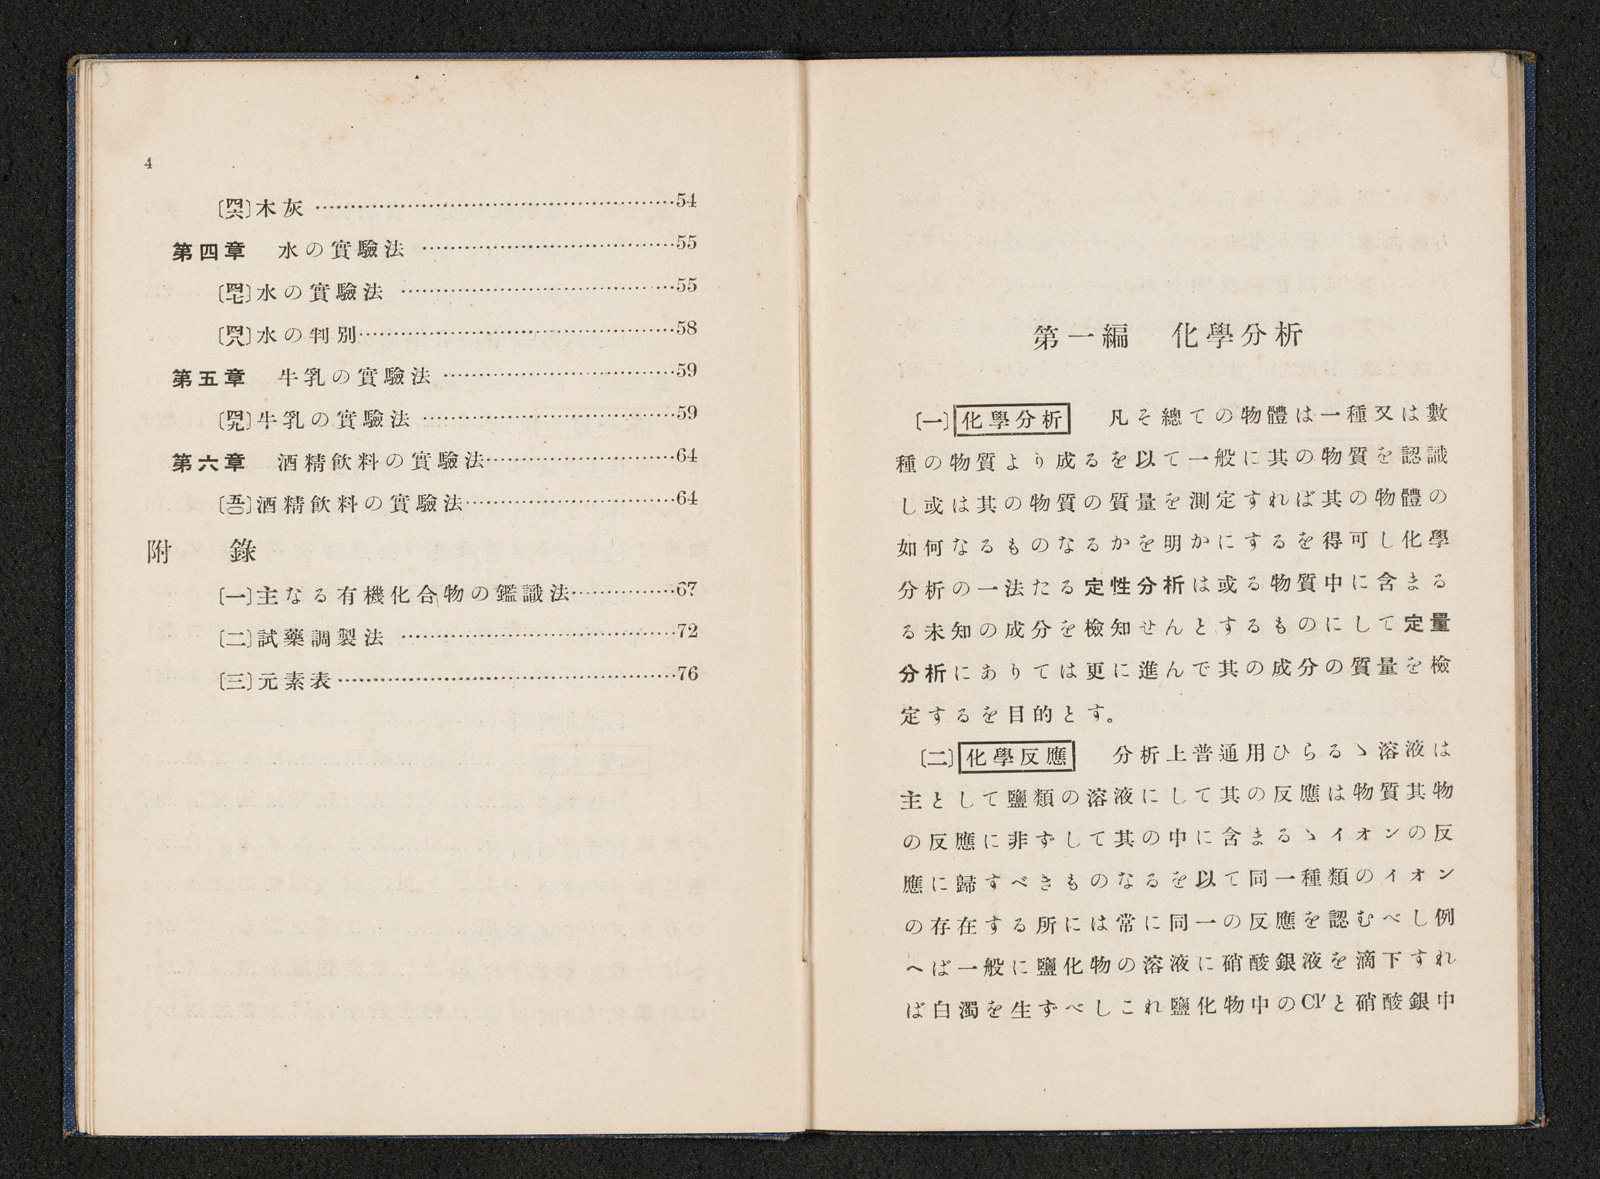 4
〔四六〕木灰 ………………………………………54
第四章　水の實驗法 ……………………………55
〔四七〕水の實驗法 ………………………………55
〔四八〕水の判別……………………………………58
第五章　牛乳の實驗法 …………………………59
〔四九〕牛乳の實驗法 ……………………………59
第六章　酒精飮料の實驗法………………………64
〔五〇〕酒精飮料の實驗法…………………………64
附　　錄
〔一〕主なる有機化合物の鑑識法……………67
〔二〕試藥調製法 ………………………………72
〔三〕元素表………………………………………76
第一編　化學分析
〔一〕化學分析　凡そ總ての物體は一種又は數
種の物質より成るを以て一般に其の物質を認識
し或は其の物質の質量を測定すれば其の物體の
如何なるものなるかを明かにするを得可し化學
分析の一法たる定性分析は或る物質中に含まる
る未知の成分を檢知せんとするものにして定量
分析にありては更に進んで其の成分の質量を檢
定するを目的とす。
〔二〕化學反應　分析上普通用ひらるゝ溶液は
主として鹽類の溶液にして其の反應は物質其物
の反應に非ずして其の中に含まるゝイオンの反
應に歸すべきものなるを以て同一種類のイオン
の存在する所には常に同一の反應を認むべし例
へば一般に鹽化物の溶液に硝酸銀液を滴下すれ
ば白濁を生ずべしこれ鹽化物中のCl′と硝酸銀中